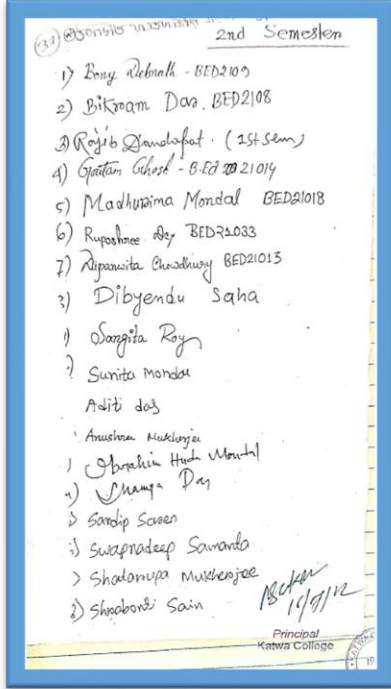 2nd Semester
1) Bony Debnath - BED2109
2) Bikroam Das. BED2108
3) Rajib Dandapat. (1st Sem)
4) Goutam Ghosh - B.Ed 21014
5) Madhurima Mondal BED21018
6) Ruposhree Dey BED21033
7) Dipanwita Chowdhury BED21013
Dibyendu Saha
Sangita Roy
Sunita Mondal
Aditi das
Anushree Mukherjee
Huda Mondal
Sandip Soren
Swapnadeep Samanta
Shatarupa Mukherjee
Shraboni Sain
Principal
Katwa College